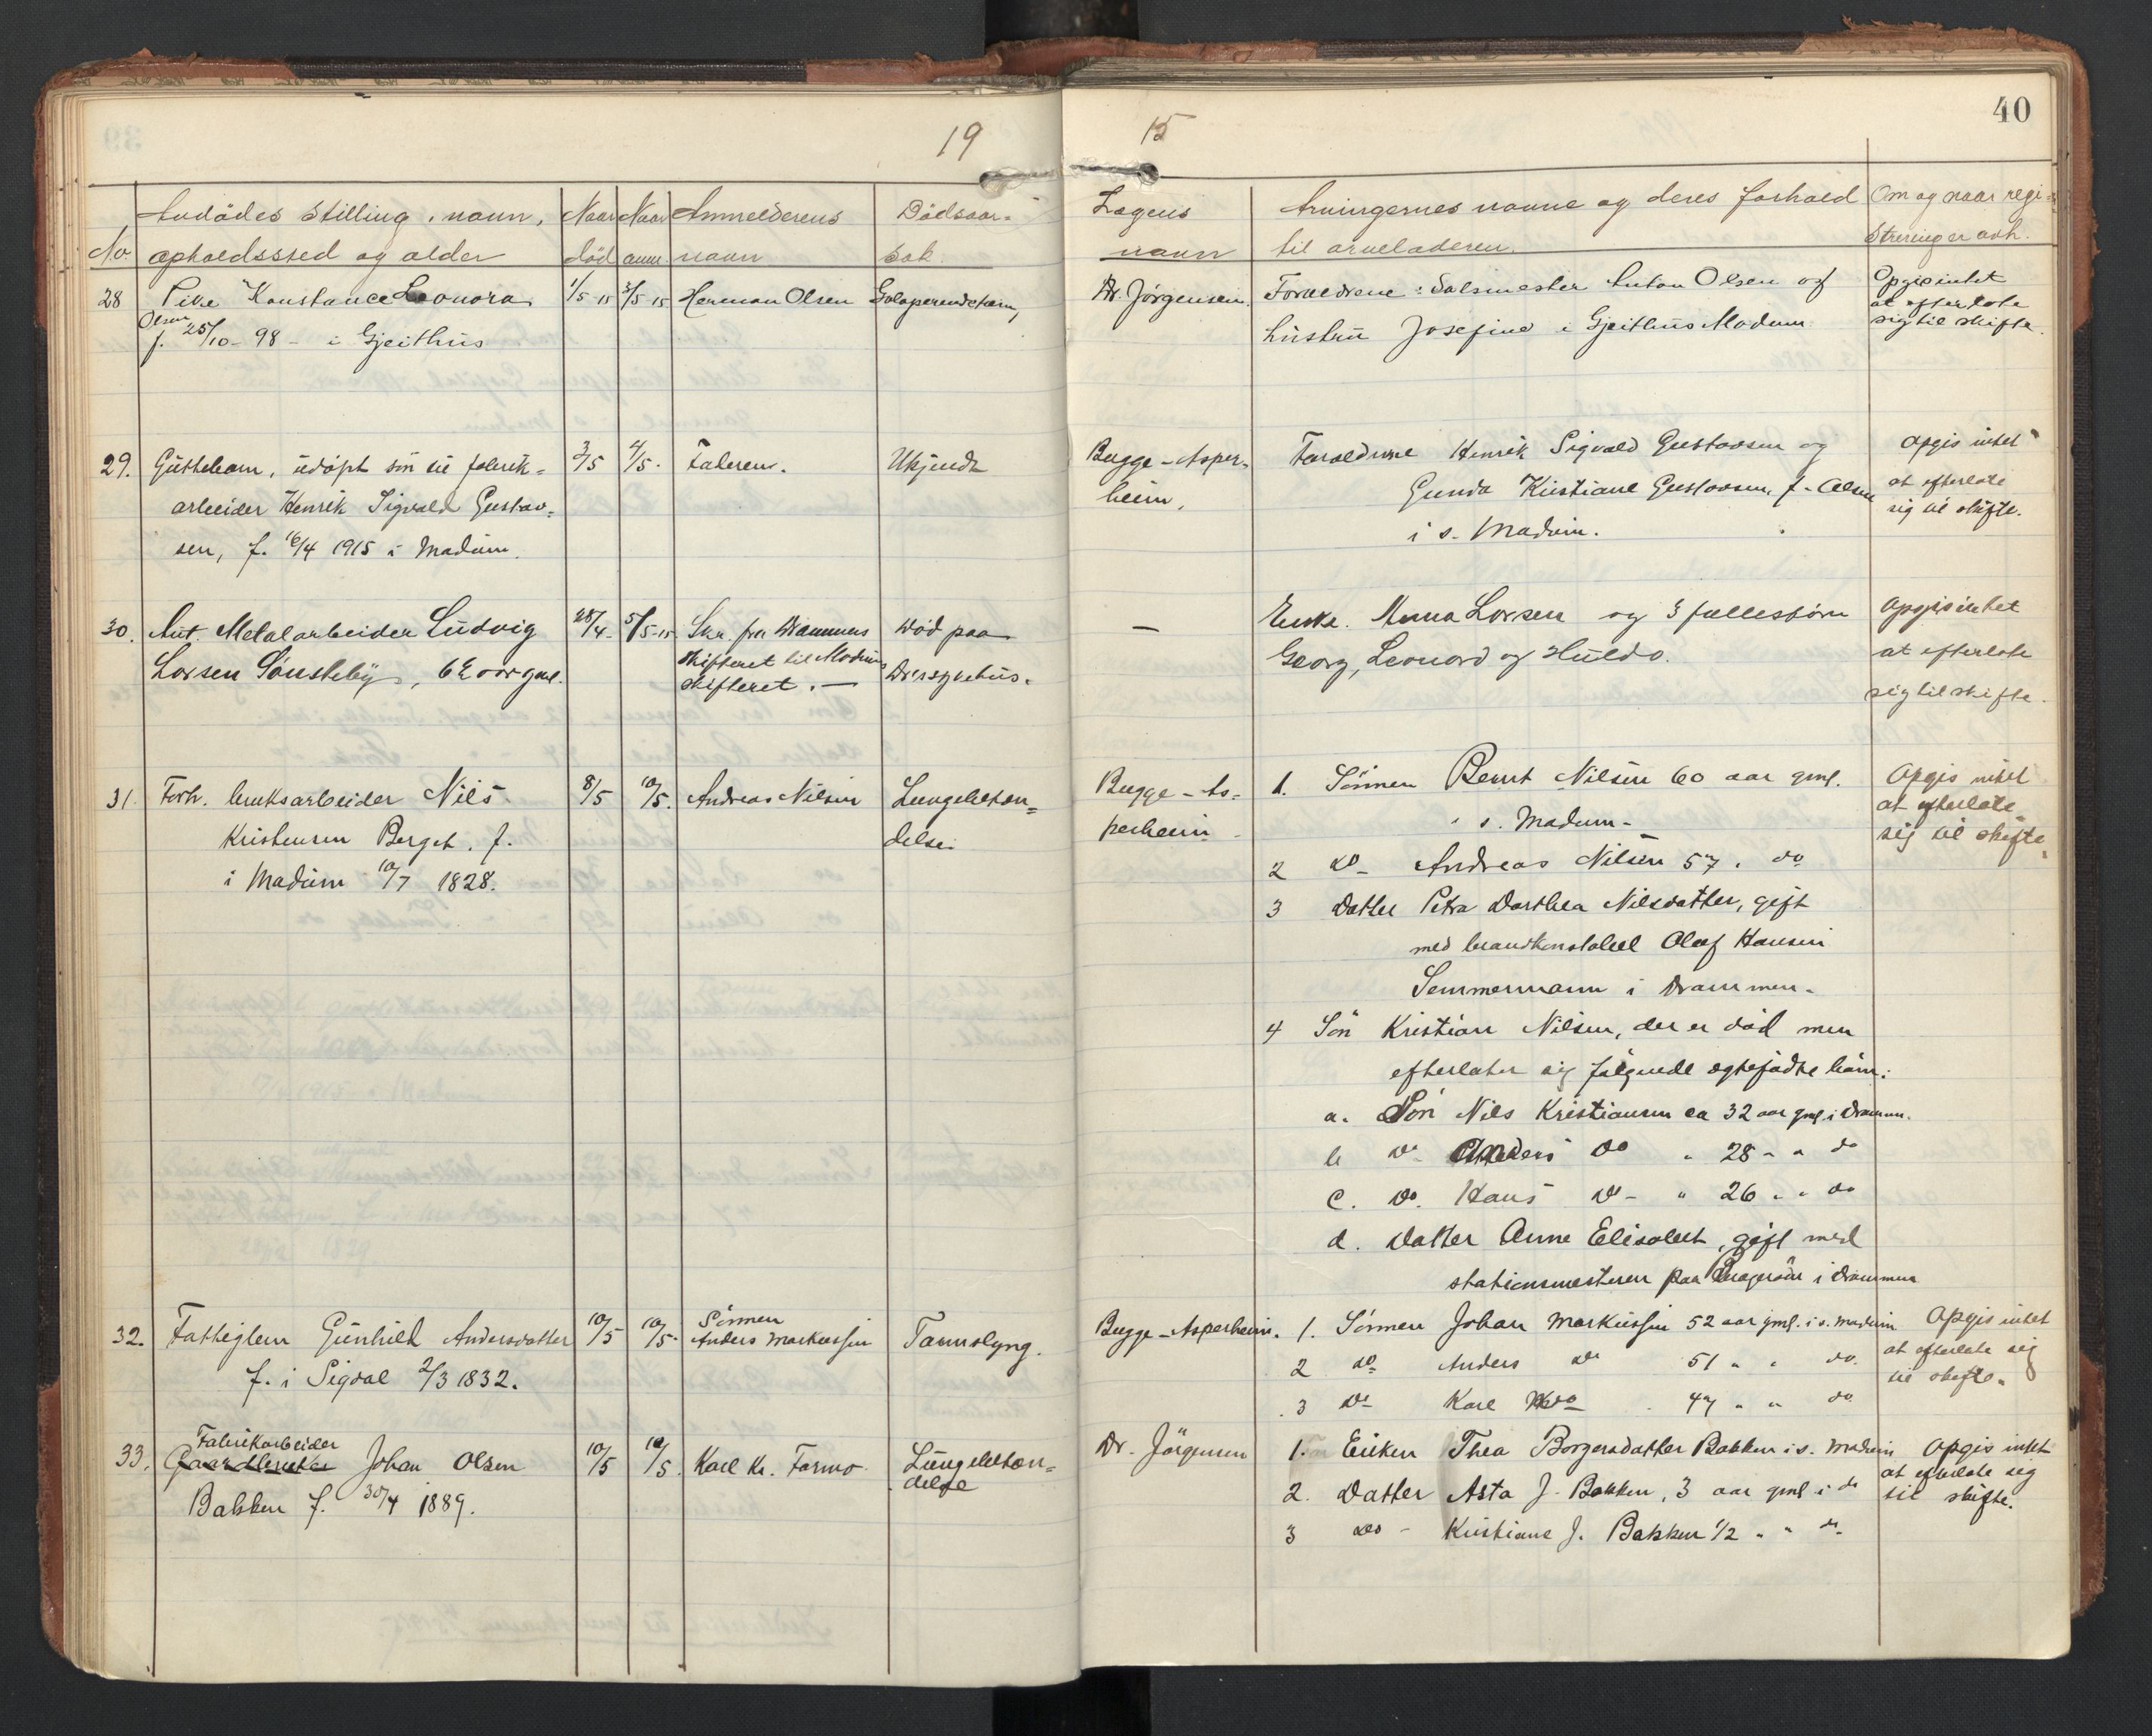 40
19 15
No
Avdødes stilling, navn,
opholdssted og alder
Naar
død
Naar
anm.
Anmelderens
navn
Dødsaar-
sak.
Lægens
navn
Arvingernes navne og deres forhold
til arveladeren.
Om og naar regi-
strering er avh.
28 Pike Konstance Leonora
Olsen
f. 25/10 - 98 - i Gjeithus
1/5 15
3/5 15
Herman Olsen
Dr. Jörgensen.
Forældrene: Salsmester Anton Olsen og
hustru Josefine i Gjeithus Modum.
Opgis intet
at efterlate
sig til skifte.
29. Guttebarn, udøpt søn til fabrik-
arbeider Henrik Sigvald Gustav-
sen, f. 16/4 1915 i Modum.
3/5
4/5.
Faderen.
Ukjendt
Bugge-Asper-
heim.
Forældrene Henrik Sigvald Gustavsen og
Gunda Kristiane Gustavsen, f. Olsen
i s. Modum.
Opgis intet
at efterlate
sig til skifte.
30. Aut. Metalarbeider Ludvig
Larsen Sønsteby, 62 aar gml.
28/4-
5/5-15
Skr. fra Drammens
skifteret til Modums
skifteret. —
Død paa
Dr. sykehus.
—
Enke. Anna Larsen og 3 fællesbørn
Georg, Leonard og Hulda.
Opgis intet
at efterlate
sig til skifte.
31. Forh. bruksarbeider Nils
Kristensen Berget. f.
i Modum 10/7 1828.
8/5
10/5.
Andreas Nilsen
Lungebetæn-
delse.
Bugge-As-
perheim.
1. Sönnen Bernt Nilsen 60 aar gml.
i s. Modum -
2 do - Andreas Nilsen 57. do
3 Datter Petra Dorthea Nilsdatter, gift
med brandkonstabel Olaf Hansen
Semmermann i Drammen.
4 Sön Kristian Nilsen, der er död men
efterlater sig fölgende egtefødte børn:
a. Sön Nils Kristiansen ca 32 aar gml. i Drammen.
b do Anders do " 28 - " do
c. do. Hans do - " 26 " " do
d. Datter Anne Elisabet, gift med
stationsmesteren paa Bragerøen i Drammen
Opgis intet
at efterlate
sig til skifte.
32. Fattiglem Gunhild Andersdatter
f. i Sigdal 2/3 1832.
10/5
10/5.
Sönnen
Anders Markussen
Bugge-Asperheim.
1. Sönnen Johan Markussen 52 aar gml. i s. Modum
2 do Anders do 51 " " do.
3 do Karl do 47 " " do
Opgis intet
at efterlate sig
til skifte.
33. Fabrikarbeider
Gaardbruker Johan Olsen
Bakken f. 30/4 1889.
10/5
10/5.
Karl Kr. Formo
Lungebetæn-
delse
Dr. Jörgensen
1. Enken Thea Borgersdatter Bakken i s. Modum
2. Datter Asta J. Bakken, 3 aar gml i do
3 do - Kristiane J. Bakken 1/2 " " do
Opgis intet
at efterlate sig
til skifte.